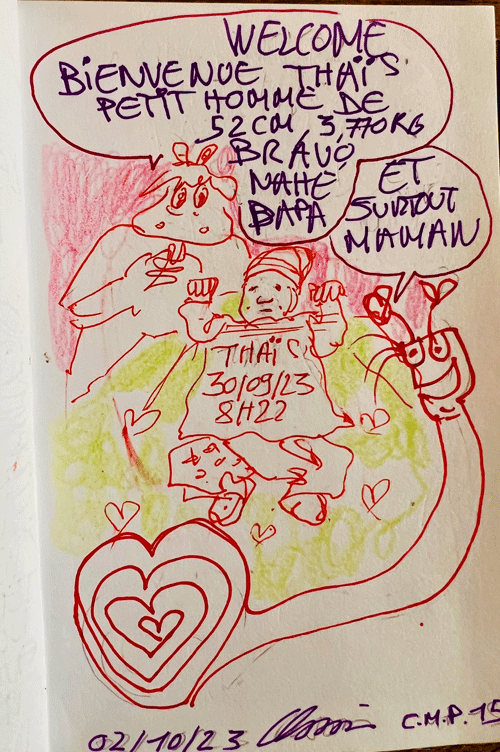 WELCOME
BIENVENUE THAÏS
PETIT HOMME DE
52CM, 3,770KG
BRAVO
NAHE
PAPA
ET
SURTOUT
MAMAN
THAÏS
30/09/23
8H22
02/10/23 C.M.P. 15